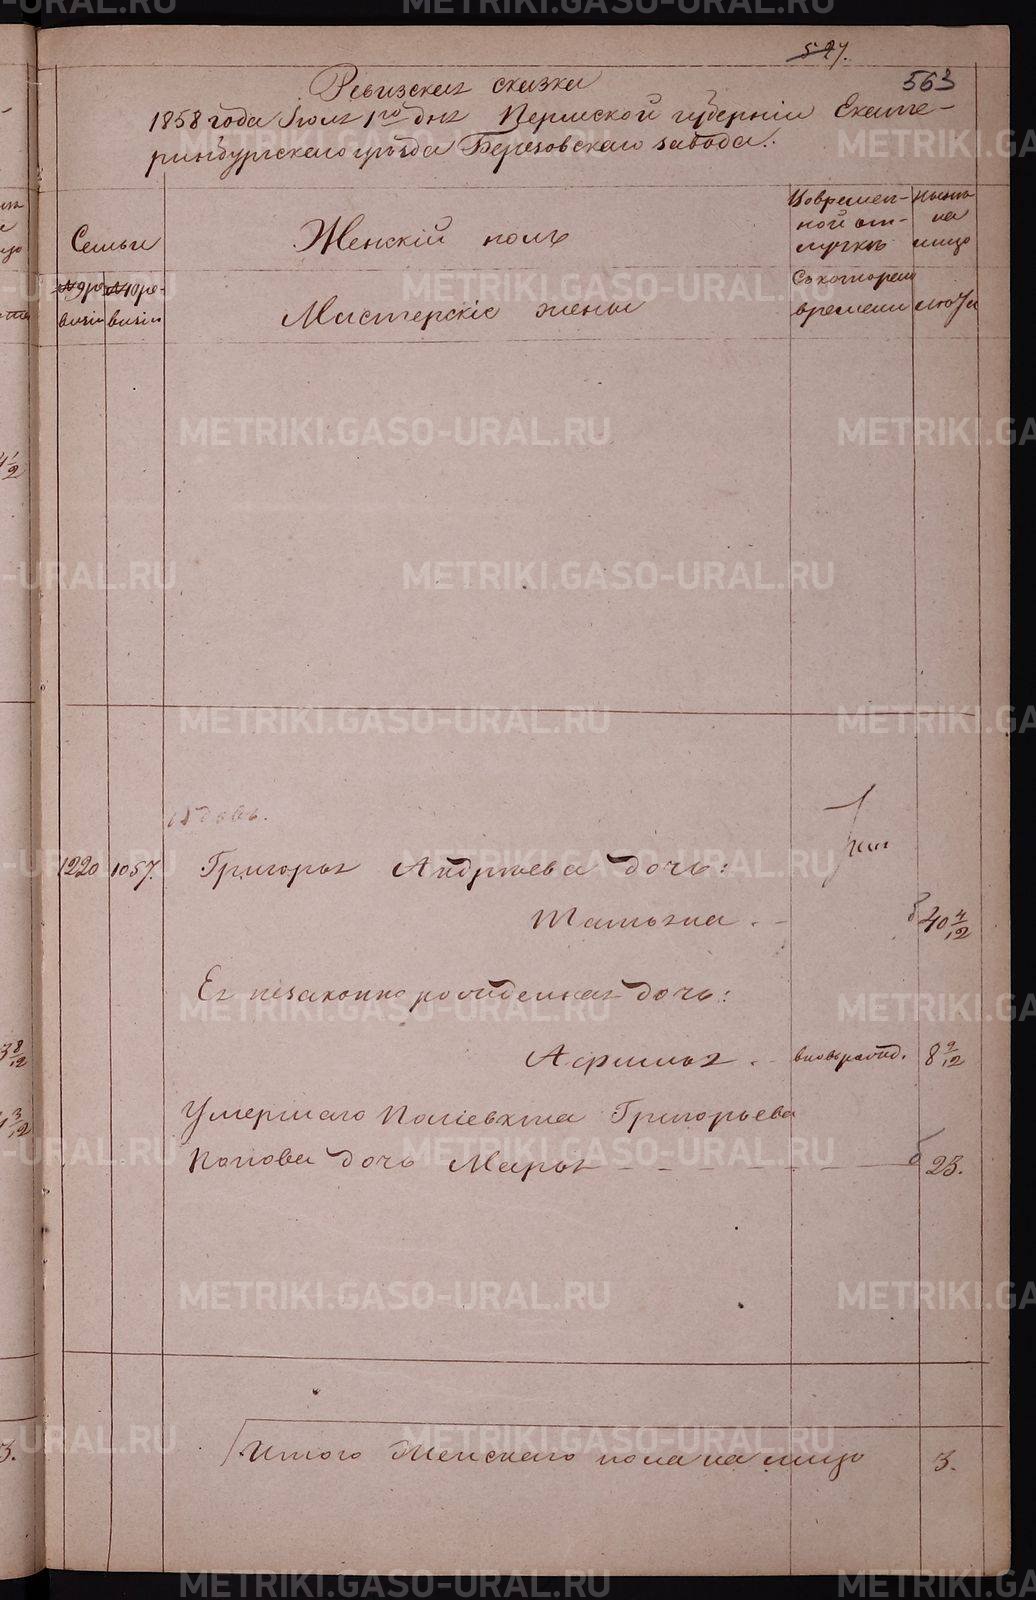 527.
563
Ревизская сказка
1858 года Июля 1го дня Пермской губернiи Екате-
ринбургскаго уѣзда Березовскаго завода.
Семьи
Женскiй полъ
Во времен-
ной от-
лучкѣ
Нынѣ
на
лицо
№ 9 ре-
визiи
№ 10 ре-
визiи
Мастерскiе жены
Съ котораго
времени
лѣта
вдовъ.
1220 1057. Григорья Андреева дочь:
Татьяна . - 40 4/12
Ея незаконно рожденная дочь:
Афимья . - вновьрожд. 8 9/12
Умершаго Полiевкта Григорьева
Попова дочь Марья 23.
Итого Женскаго пола на лицо 3.
METRIKI.GASO-URAL.RU